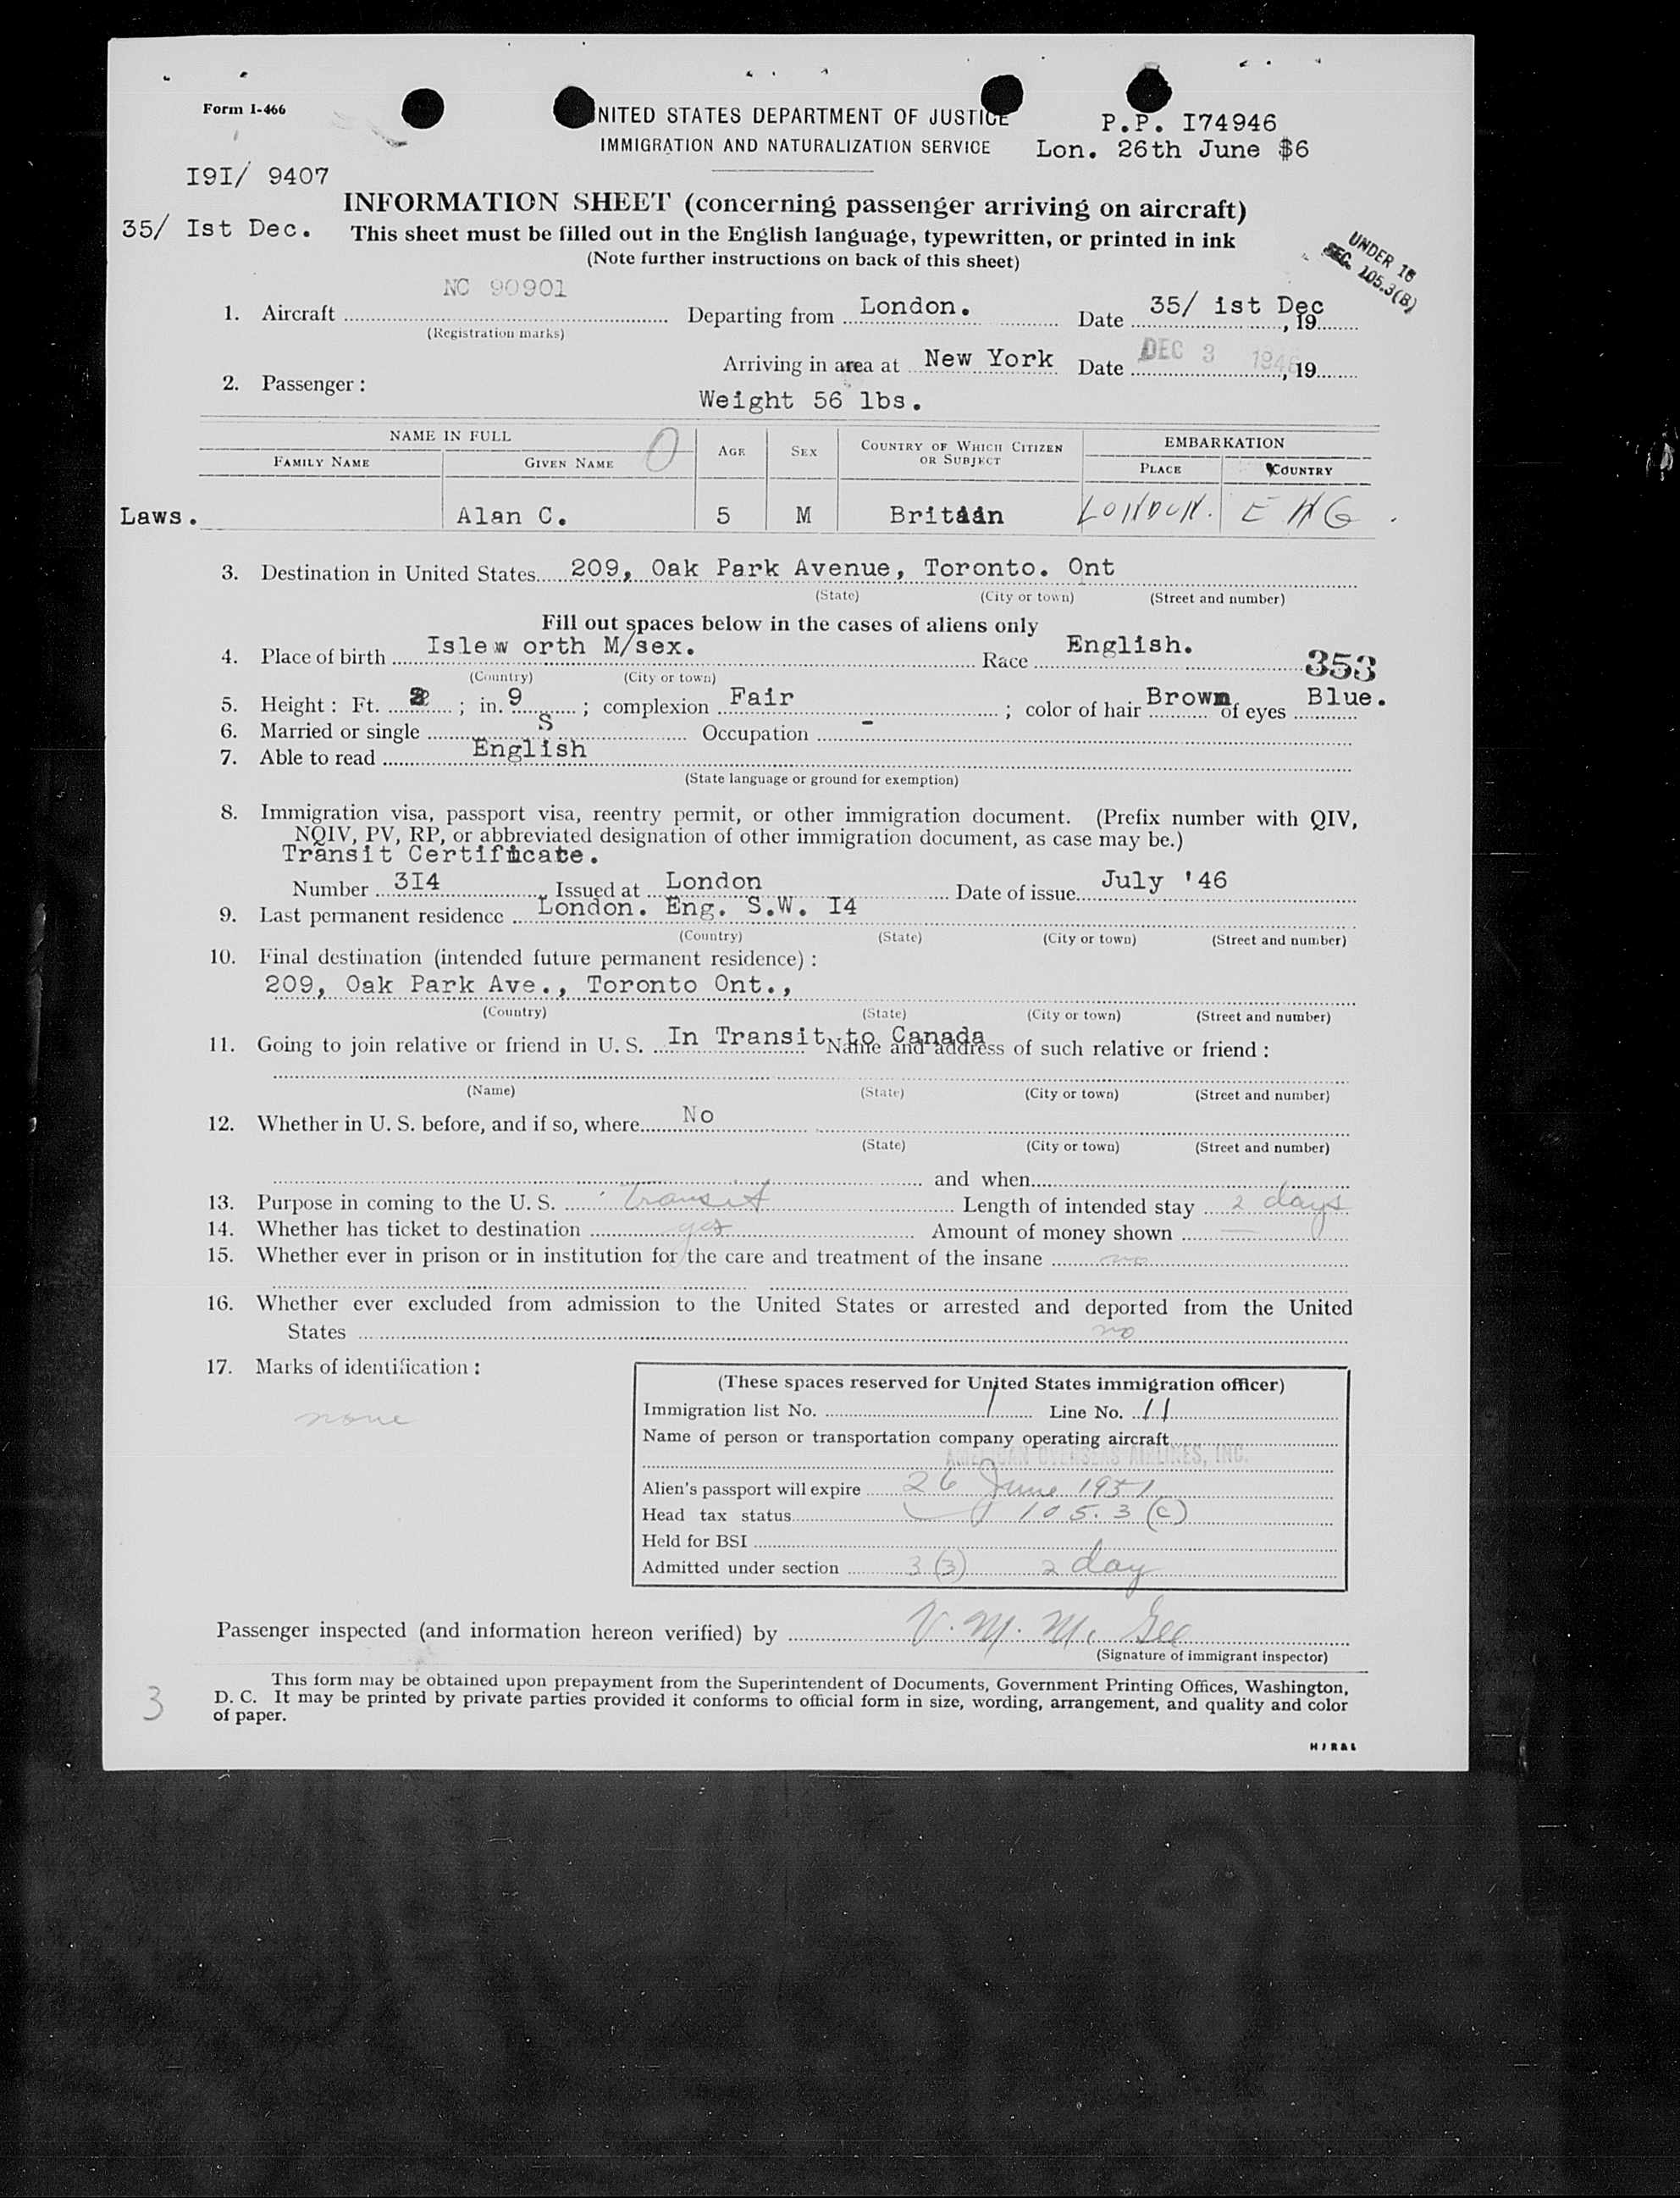 Form I-466
NITED STATES DEPARTMENT OF JUSTICE
P.P. I74946
IMMIGRATION AND NATURALIZATION SERVICE
Lon. 26th June $6
I9I/ 9407
INFORMATION SHEET (concerning passenger arriving on aircraft)
35/ Ist Dec.
This sheet must be filled out in the English language, typewritten, or printed in ink
(Note further instructions on back of this sheet)
UNDER 16
SEC. 105.3(B)
NC 90901
1. Aircraft Departing from London. Date 35/ ist Dec, 19
(Registration marks)
Arriving in area at New York Date DEC 3 1946, 19
2. Passenger:
Weight 56 lbs.
NAME IN FULL
0
AGE SEX COUNTRY OF WHICH CITIZEN OR SUBJECT
EMBARKATION
FAMILY NAME GIVEN NAME PLACE COUNTRY
Laws. Alan C. 5 M Britain LONDON. ENG.
3. Destination in United States 209, Oak Park Avenue, Toronto. Ont
(State) (City or town) (Street and number)
Fill out spaces below in the cases of aliens only
4. Place of birth Islew orth M/sex. Race English.
353
(Country) (City or town)
5. Height: Ft. ; in. 9 ; complexion Fair ; color of hair Brown of eyes Blue.
6. Married or single S Occupation -
7. Able to read English
(State language or ground for exemption)
8. Immigration visa, passport visa, reentry permit, or other immigration document. (Prefix number with QIV,
NQIV, PV, RP, or abbreviated designation of other immigration document, as case may be.)
Transit Certificate.
Number 3I4 Issued at London Date of issue July '46
9. Last permanent residence London. Eng. S.W. I4
(Country) (State) (City or town) (Street and number)
10. Final destination (intended future permanent residence):
209, Oak Park Ave., Toronto Ont.,
(Country) (State) (City or town) (Street and number)
11. Going to join relative or friend in U. S. In Transit to Canada Name and address of such relative or friend:
(Name) (State) (City or town) (Street and number)
12. Whether in U. S. before, and if so, where No
(State) (City or town) (Street and number)
and when
13. Purpose in coming to the U. S. Transit Length of intended stay 2 days
14. Whether has ticket to destination yes Amount of money shown —
15. Whether ever in prison or in institution for the care and treatment of the insane no
16. Whether ever excluded from admission to the United States or arrested and deported from the United
States no
17. Marks of identification:
none
(These spaces reserved for United States immigration officer)
Immigration list No. 1 Line No. 11
Name of person or transportation company operating aircraft
AMERICAN OVERSEAS AIRLINES, INC.
Alien's passport will expire 26 June 1951
Head tax status 105.3 (c)
Held for BSI
Admitted under section 3(3) 2 day
Passenger inspected (and information hereon verified) by V. M. Mc Gee
(Signature of immigrant inspector)
This form may be obtained upon prepayment from the Superintendent of Documents, Government Printing Offices, Washington,
D. C. It may be printed by private parties provided it conforms to official form in size, wording, arrangement, and quality and color
of paper.
3
HJR&L